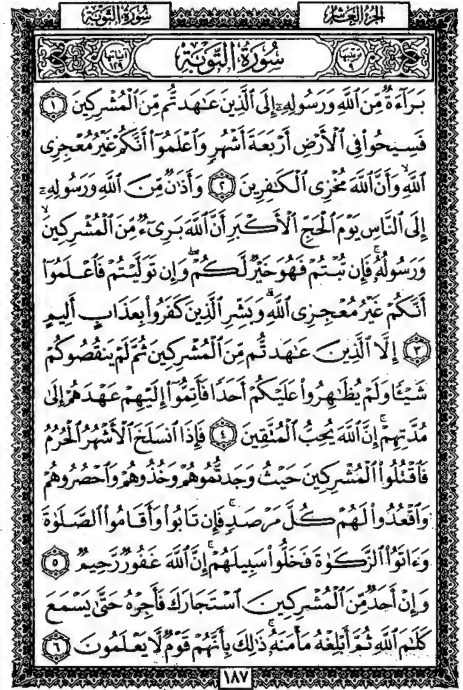 سُورَةُ التَّوْبَةِ
الجُزْءُ العَاشِرُ
ترتيبها ٩
سُورَةُ التَّوْبَةِ
آياتها ١٢٩
بَرَآءَةٌ مِّنَ ٱللَّهِ وَرَسُولِهِۦٓ إِلَى ٱلَّذِينَ عَٰهَدتُّم مِّنَ ٱلْمُشْرِكِينَ ١
فَسِيحُوا۟ فِى ٱلْأَرْضِ أَرْبَعَةَ أَشْهُرٍ وَٱعْلَمُوٓا۟ أَنَّكُمْ غَيْرُ مُعْجِزِى
ٱللَّهِ ۙ وَأَنَّ ٱللَّهَ مُخْزِى ٱلْكَٰفِرِينَ ٢ وَأَذَٰنٌ مِّنَ ٱللَّهِ وَرَسُولِهِۦٓ
إِلَى ٱلنَّاسِ يَوْمَ ٱلْحَجِّ ٱلْأَكْبَرِ أَنَّ ٱللَّهَ بَرِىٓءٌ مِّنَ ٱلْمُشْرِكِينَ ۙ
وَرَسُولُهُۥ ۚ فَإِن تُبْتُمْ فَهُوَ خَيْرٌ لَّكُمْ ۖ وَإِن تَوَلَّيْتُمْ فَٱعْلَمُوٓا۟
أَنَّكُمْ غَيْرُ مُعْجِزِى ٱللَّهِ ۗ وَبَشِّرِ ٱلَّذِينَ كَفَرُوا۟ بِعَذَابٍ أَلِيمٍ
٣ إِلَّا ٱلَّذِينَ عَٰهَدتُّم مِّنَ ٱلْمُشْرِكِينَ ثُمَّ لَمْ يَنقُصُوكُمْ
شَيْـًٔا وَلَمْ يُظَٰهِرُوا۟ عَلَيْكُمْ أَحَدًا فَأَتِمُّوٓا۟ إِلَيْهِمْ عَهْدَهُمْ إِلَىٰ
مُدَّتِهِمْ ۚ إِنَّ ٱللَّهَ يُحِبُّ ٱلْمُتَّقِينَ ٤ فَإِذَا ٱنسَلَخَ ٱلْأَشْهُرُ ٱلْحُرُمُ
فَٱقْتُلُوا۟ ٱلْمُشْرِكِينَ حَيْثُ وَجَدتُّمُوهُمْ وَخُذُوهُمْ وَٱحْصُرُوهُمْ
وَٱقْعُدُوا۟ لَهُمْ كُلَّ مَرْصَدٍ ۚ فَإِن تَابُوا۟ وَأَقَامُوا۟ ٱلصَّلَوٰةَ
وَءَاتَوُا۟ ٱلزَّكَوٰةَ فَخَلُّوا۟ سَبِيلَهُمْ ۚ إِنَّ ٱللَّهَ غَفُورٌ رَّحِيمٌ ٥
وَإِنْ أَحَدٌ مِّنَ ٱلْمُشْرِكِينَ ٱسْتَجَارَكَ فَأَجِرْهُ حَتَّىٰ يَسْمَعَ
كَلَٰمَ ٱللَّهِ ثُمَّ أَبْلِغْهُ مَأْمَنَهُۥ ۚ ذَٰلِكَ بِأَنَّهُمْ قَوْمٌ لَّا يَعْلَمُونَ ٦
١٨٧